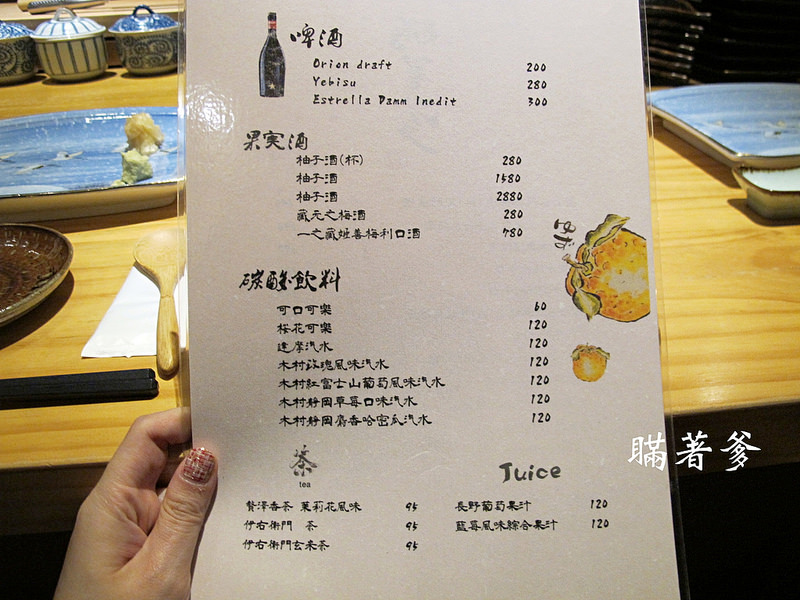 啤酒
Orion draft 200
Yebisu 280
Estrella Damm Inedit 300
果実酒
柚子酒(杯) 280
柚子酒 1580
柚子酒 2880
藏元之梅酒 280
一之藏姫善梅利口酒 780
ゆず
碳酸飲料
可口可樂 60
桜花可樂 120
達摩汽水 120
木村玫瑰風味汽水 120
木村紅富士山葡萄風味汽水 120
木村靜岡草莓口味汽水 120
木村靜岡麝香哈密瓜汽水 120
茶
tea
贅澤香茶 茉莉花風味 95
伊右衛門 茶 95
伊右衛門玄米茶 95
Juice
長野葡萄果汁 120
藍莓風味綜合果汁 120
瞞著爹